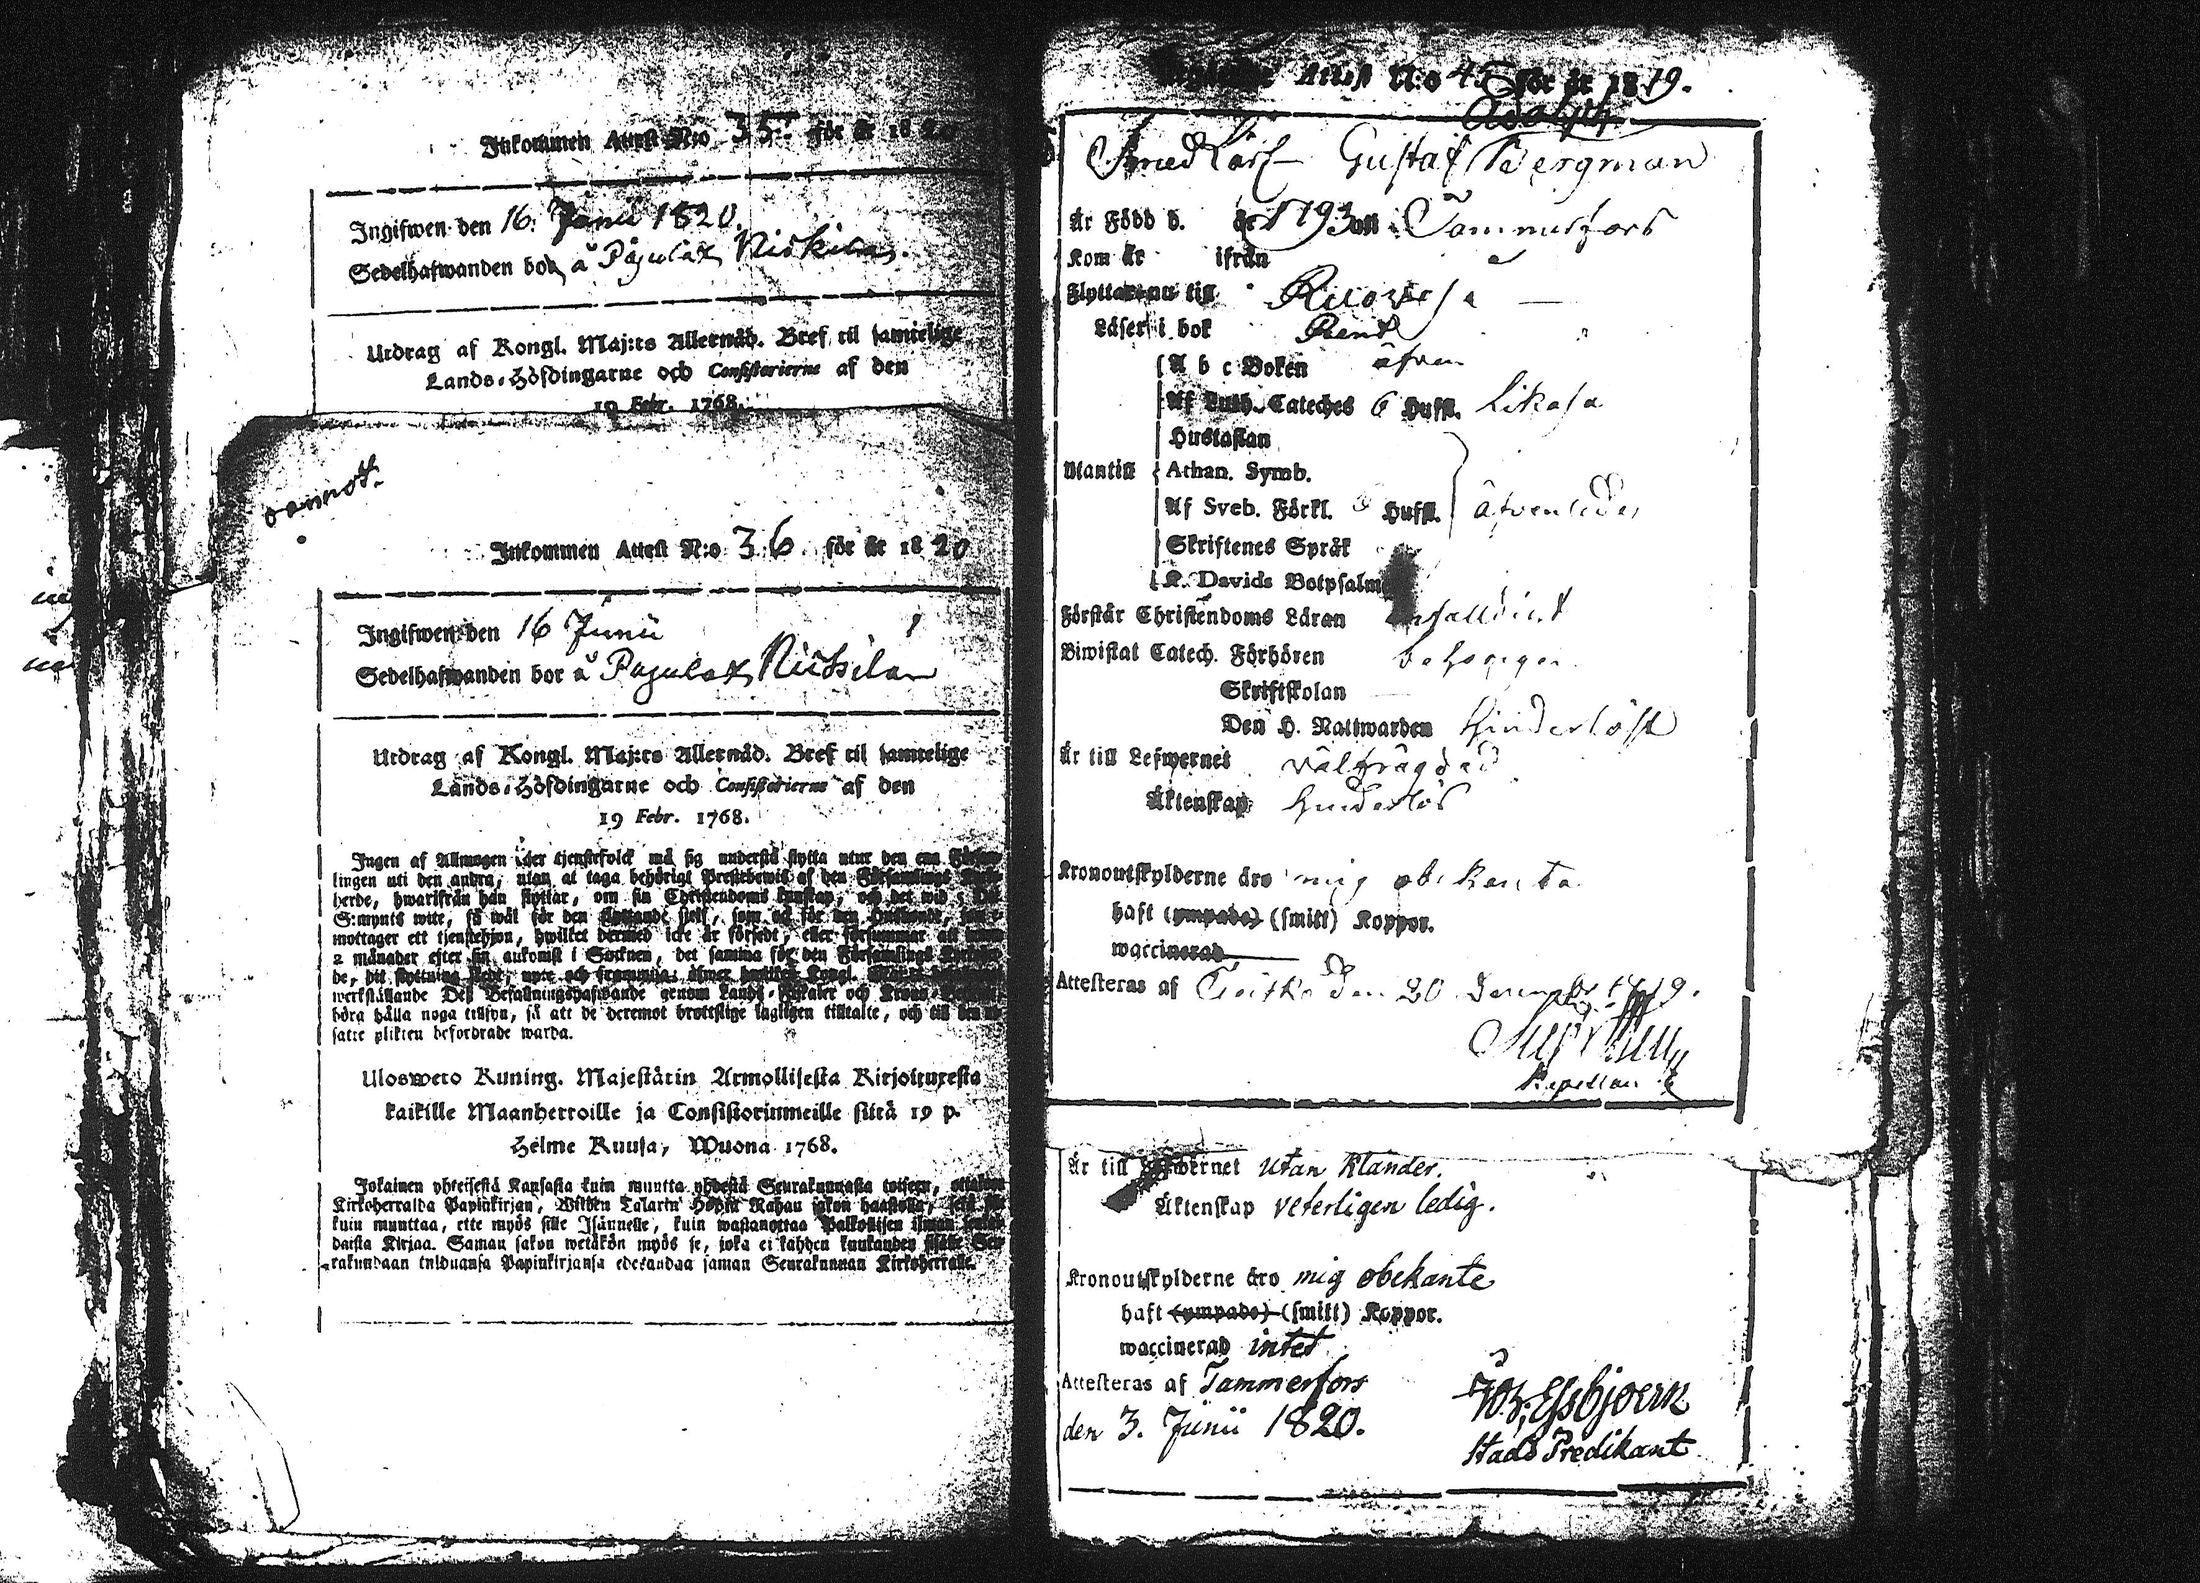 Inkommen Attest N:o 35. för år 1820
Ingifwen den 16. Junii 1820.
Sedelhafwanden bor å Pajulax
Utdrag af Kongl. Maj:ts Allernåd. Bref til samtelige
Lands-Höfdingarne och Consistorierne af den
19 Febr. 1768.
Inkommen Attest N:o 36. för år 1820
Ingifwen den 16 Junii
Sedelhafwanden bor å Pajulax
Utdrag af Kongl. Maj:ts Allernåd. Bref til samtelige
Lands-Höfdingarne och Consistorierne af den
19 Febr. 1768.
Ingen af Allmogen eller tjenstefolck må sig understå flytta utur den ena
lingen uti den andra, utan at taga behörigt Prestebewis af den Församlings
herde, hwarifrån han flyttar, om sin Christendoms kunskap, och det wid 5
S:mynts wite, så wäl för den flyttande sjelf, som ock för den Husbonde, som e-
mottager ett tjenstehjon, hwilket dermed icke är försedt, eller försummar att
2 månader efter sin ankomst i Socknen, det samma för den Församlings
de, dit flyttning skedt, upte och framwisa;
werkställande Des Befallningshafwande genom Lands-Fiskaler och Krono-
böra hålla noga tillsyn, så att de deremot brottslige lagligen tilltalte, och till den ut-
satte plikten befordrade warda.
Ulosweto Kuning. Majestätin Armollisesta Kirjoituxesta
kaikille Maanherroille ja Consistoriumeille siitä 19 p.
Helme Kuusa, Wuona 1768.
Jokainen yhteisestä Kansasta kuin muutta yhdestä Seurakunnasta toiseen, ottakon
Kirkoherralda Papinkirjan, Wiiden Talarin Hopia Rahan sakon haastolla,
kuin muuttaa, ette myös sille Isännelle, kuin wastanottaa Palkollisen ilman
daista Kirjaa. Saman sakon wetäkön myös se, joka ei kahden kuukauden sisälle Seu-
rakundaan tulduansa Papinkirjansa edesandaa saman Seurakunnan Kirkoherralle.
Attest N:o 45 för år 1819.
Adolph
Gustaf Bergman
Är Född d. år 1793 uti Tammerfors
Kom år ifrån
Flyttar nu till Ruovesi
Läser i bok Rent
A b c Boken äfven
Af Luth. Cateches 6 Hufst. likaså
Hustaflan
Utantill Athan. Symb.
Af Sveb. Förkl. Hufst. äfvenledes
Skriftenes Språk
K. Davids Botpsalm
Förstår Christendoms Läran enfalldigt
Biwistat Catech. Förhören behörigen
Skriftskolan
Den H. Nattwarden hinderlöst
Är till Lefwernet välfrägdad
Äktenskap hinderlös
Kronoutskylderne äro mig obekanta
haft (ympade) (smitt) Koppor.
waccinerad
Attesteras af Teisko den 20 December 1819.
Kapellan
Är till Lefwernet utan klander.
Äktenskap veterligen ledig.
Kronoutskylderne äro mig obekante
haft (ympade) (smitt) Koppor.
waccinerad intet
Attesteras af Tammerfors
den 3. Junii 1820.
Essbjoern
Stads Predikant